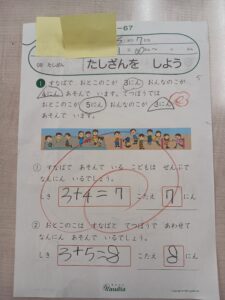 たしざん
たしざんを しよう
1 すなばで おとこのこが 3にん おんなのこが
4にん あそんで います。てつぼうでは
おとこのこが 5にん おんなのこが 3にん
あそんで います。
① すなばで あそんで いる こどもは ぜんぶで
なんにん いるでしょう。
しき 3+4=7 こたえ 7 にん
② おとこのこは すなばと てつぼうで あわせて
なんにん あそんで いるでしょう。
しき 3+5=8 こたえ 8 にん